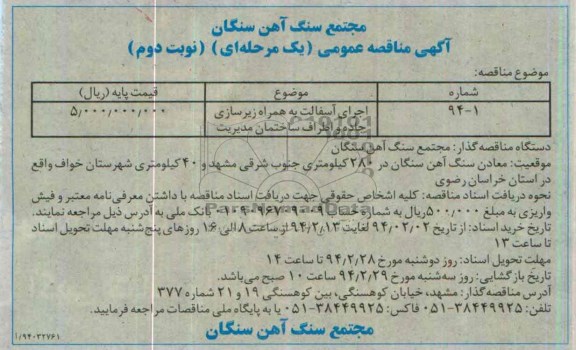 مجتمع سنگ آهن سنگان
آگهی مناقصه عمومی (یک مرحله‌ای) (نوبت دوم)
موضوع مناقصه:
شماره موضوع قیمت پایه (ریال)
۹۴-۱ اجرای آسفالت به همراه زیرسازی ۵,۰۰۰,۰۰۰,۰۰۰
جاده و اطراف ساختمان مدیریت
دستگاه مناقصه‌گذار: مجتمع سنگ آهن سنگان
موقعیت: معادن سنگ آهن سنگان در ۲۸۰ کیلومتری جنوب شرقی مشهد و ۴۰ کیلومتری شهرستان خواف واقع
در استان خراسان رضوی
نحوه دریافت اسناد مناقصه: کلیه اشخاص حقوقی جهت دریافت اسناد مناقصه با داشتن معرفی‌نامه معتبر و فیش
واریزی به مبلغ ۵۰۰,۰۰۰ ریال به شماره حساب بانک ملی به آدرس ذیل مراجعه نمایند.
تاریخ خرید اسناد: از تاریخ ۹۴/۰۲/۰۲ لغایت ۹۴/۲/۱۳ از ساعت ۸ الی ۱۶ روزهای پنج‌شنبه مهلت تحویل اسناد
تا ساعت ۱۳
مهلت تحویل اسناد: روز دوشنبه مورخ ۹۴/۲/۲۸ تا ساعت ۱۴
تاریخ بازگشایی: روز سه‌شنبه مورخ ۹۴/۲/۲۹ ساعت ۱۰ صبح می‌باشد.
آدرس مناقصه‌گذار: مشهد، خیابان کوهسنگی، بین کوهسنگی ۱۹ و ۲۱ شماره ۳۷۷
تلفن: ۳۸۴۴۹۹۲۵-۰۵۱ فاکس: ۳۸۴۴۹۹۲۵-۰۵۱ یا به پایگاه ملی مناقصات مراجعه فرمایید.
مجتمع سنگ آهن سنگان
۱/۹۴۰۳۲۷۶۱